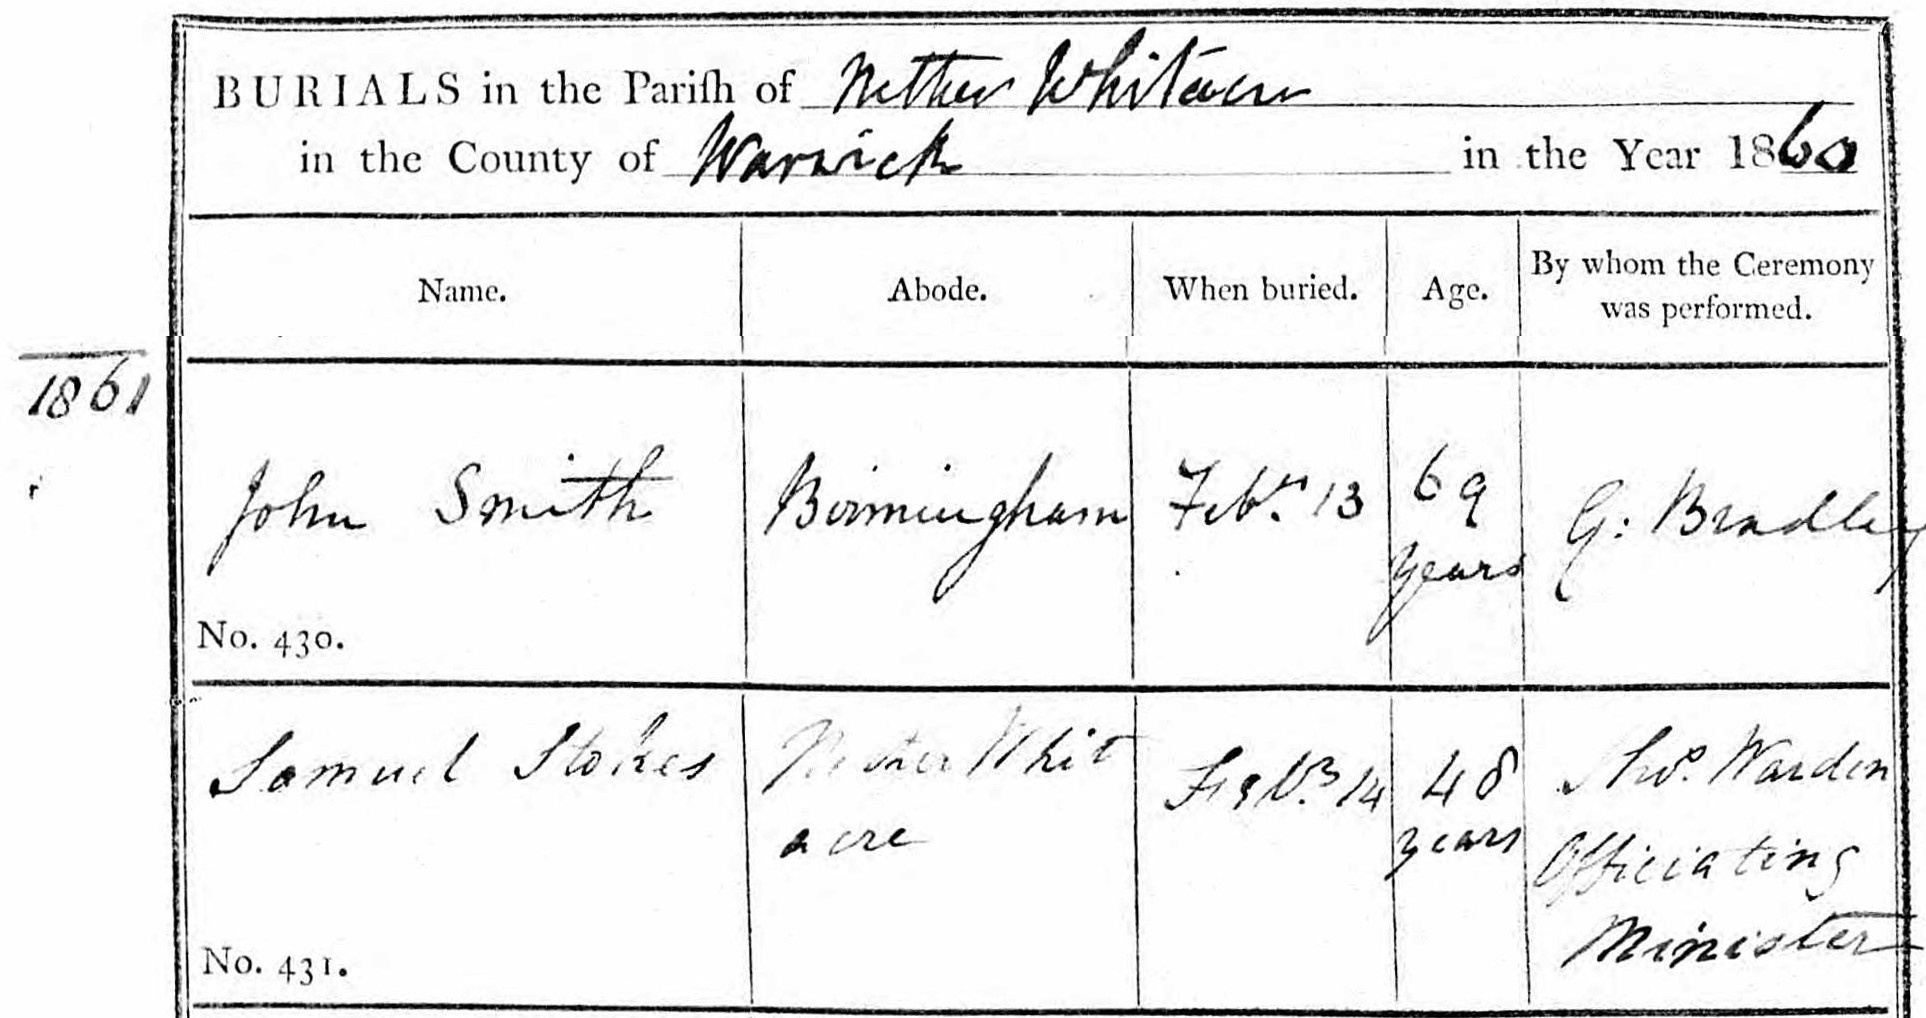 BURIALS in the Pariſh of Nether Whitacre
in the County of Warwick in the Year 1860
Name. Abode. When buried. Age. By whom the Ceremony
was performed.
1861
John Smith Birmingham Feby. 13 69 G. Bradley
years
No. 430.
Samuel Stokes Nether Whit 14 48 Thos. Warden
acre years Officiating
Minister
No. 431.